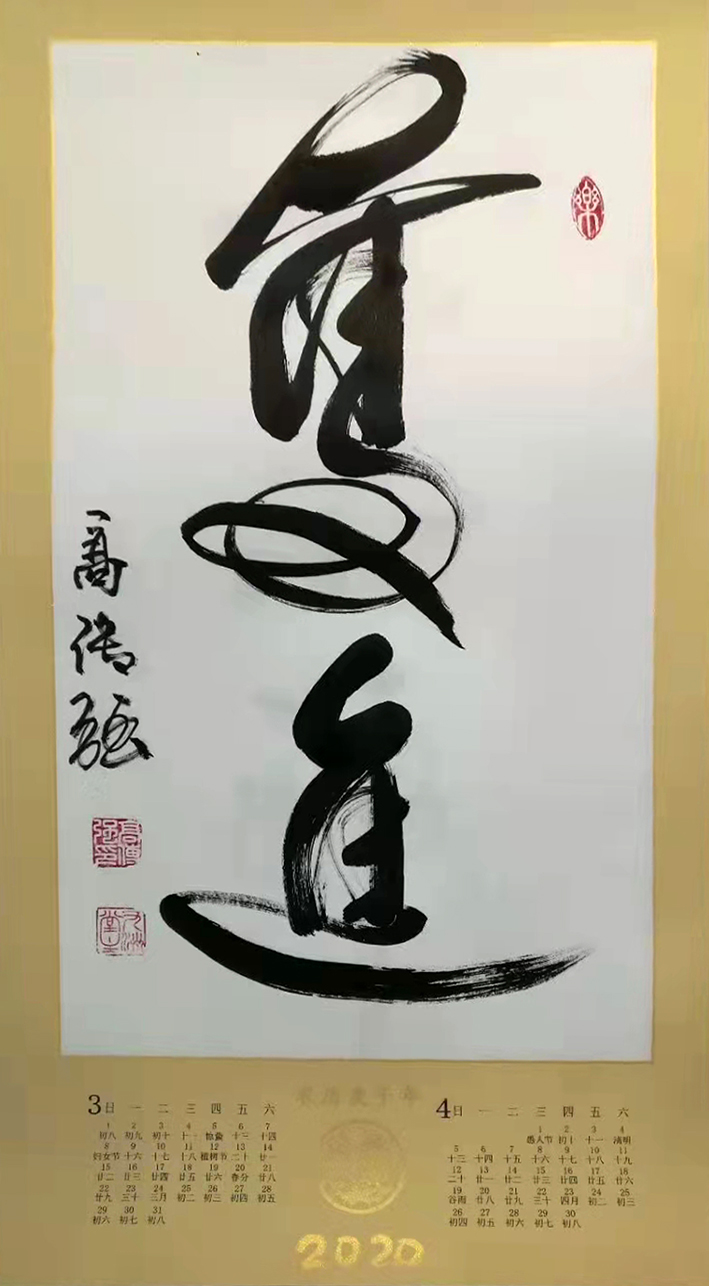 樂
奮
進
高傳強
高傳强印
农历庚子年
3 日 一 二 三 四 五 六
1 2 3 4 5 6 7
初八 初九 初十 十一 惊蛰 十三 十四
8 9 10 11 12 13 14
妇女节 十六 十七 十八 植树节 二十 廿一
15 16 17 18 19 20 21
廿二 廿三 廿四 廿五 廿六 春分 廿八
22 23 24 25 26 27 28
廿九 三十 三月 初二 初三 初四 初五
29 30 31
初六 初七 初八
4 日 一 二 三 四 五 六
1 2 3 4
愚人节 初十 十一 清明
5 6 7 8 9 10 11
十三 十四 十五 十六 十七 十八 十九
12 13 14 15 16 17 18
二十 廿一 廿二 廿三 廿四 廿五 廿六
19 20 21 22 23 24 25
谷雨 廿八 廿九 三十 四月 初二 初三
26 27 28 29 30
初四 初五 初六 初七 初八
2020